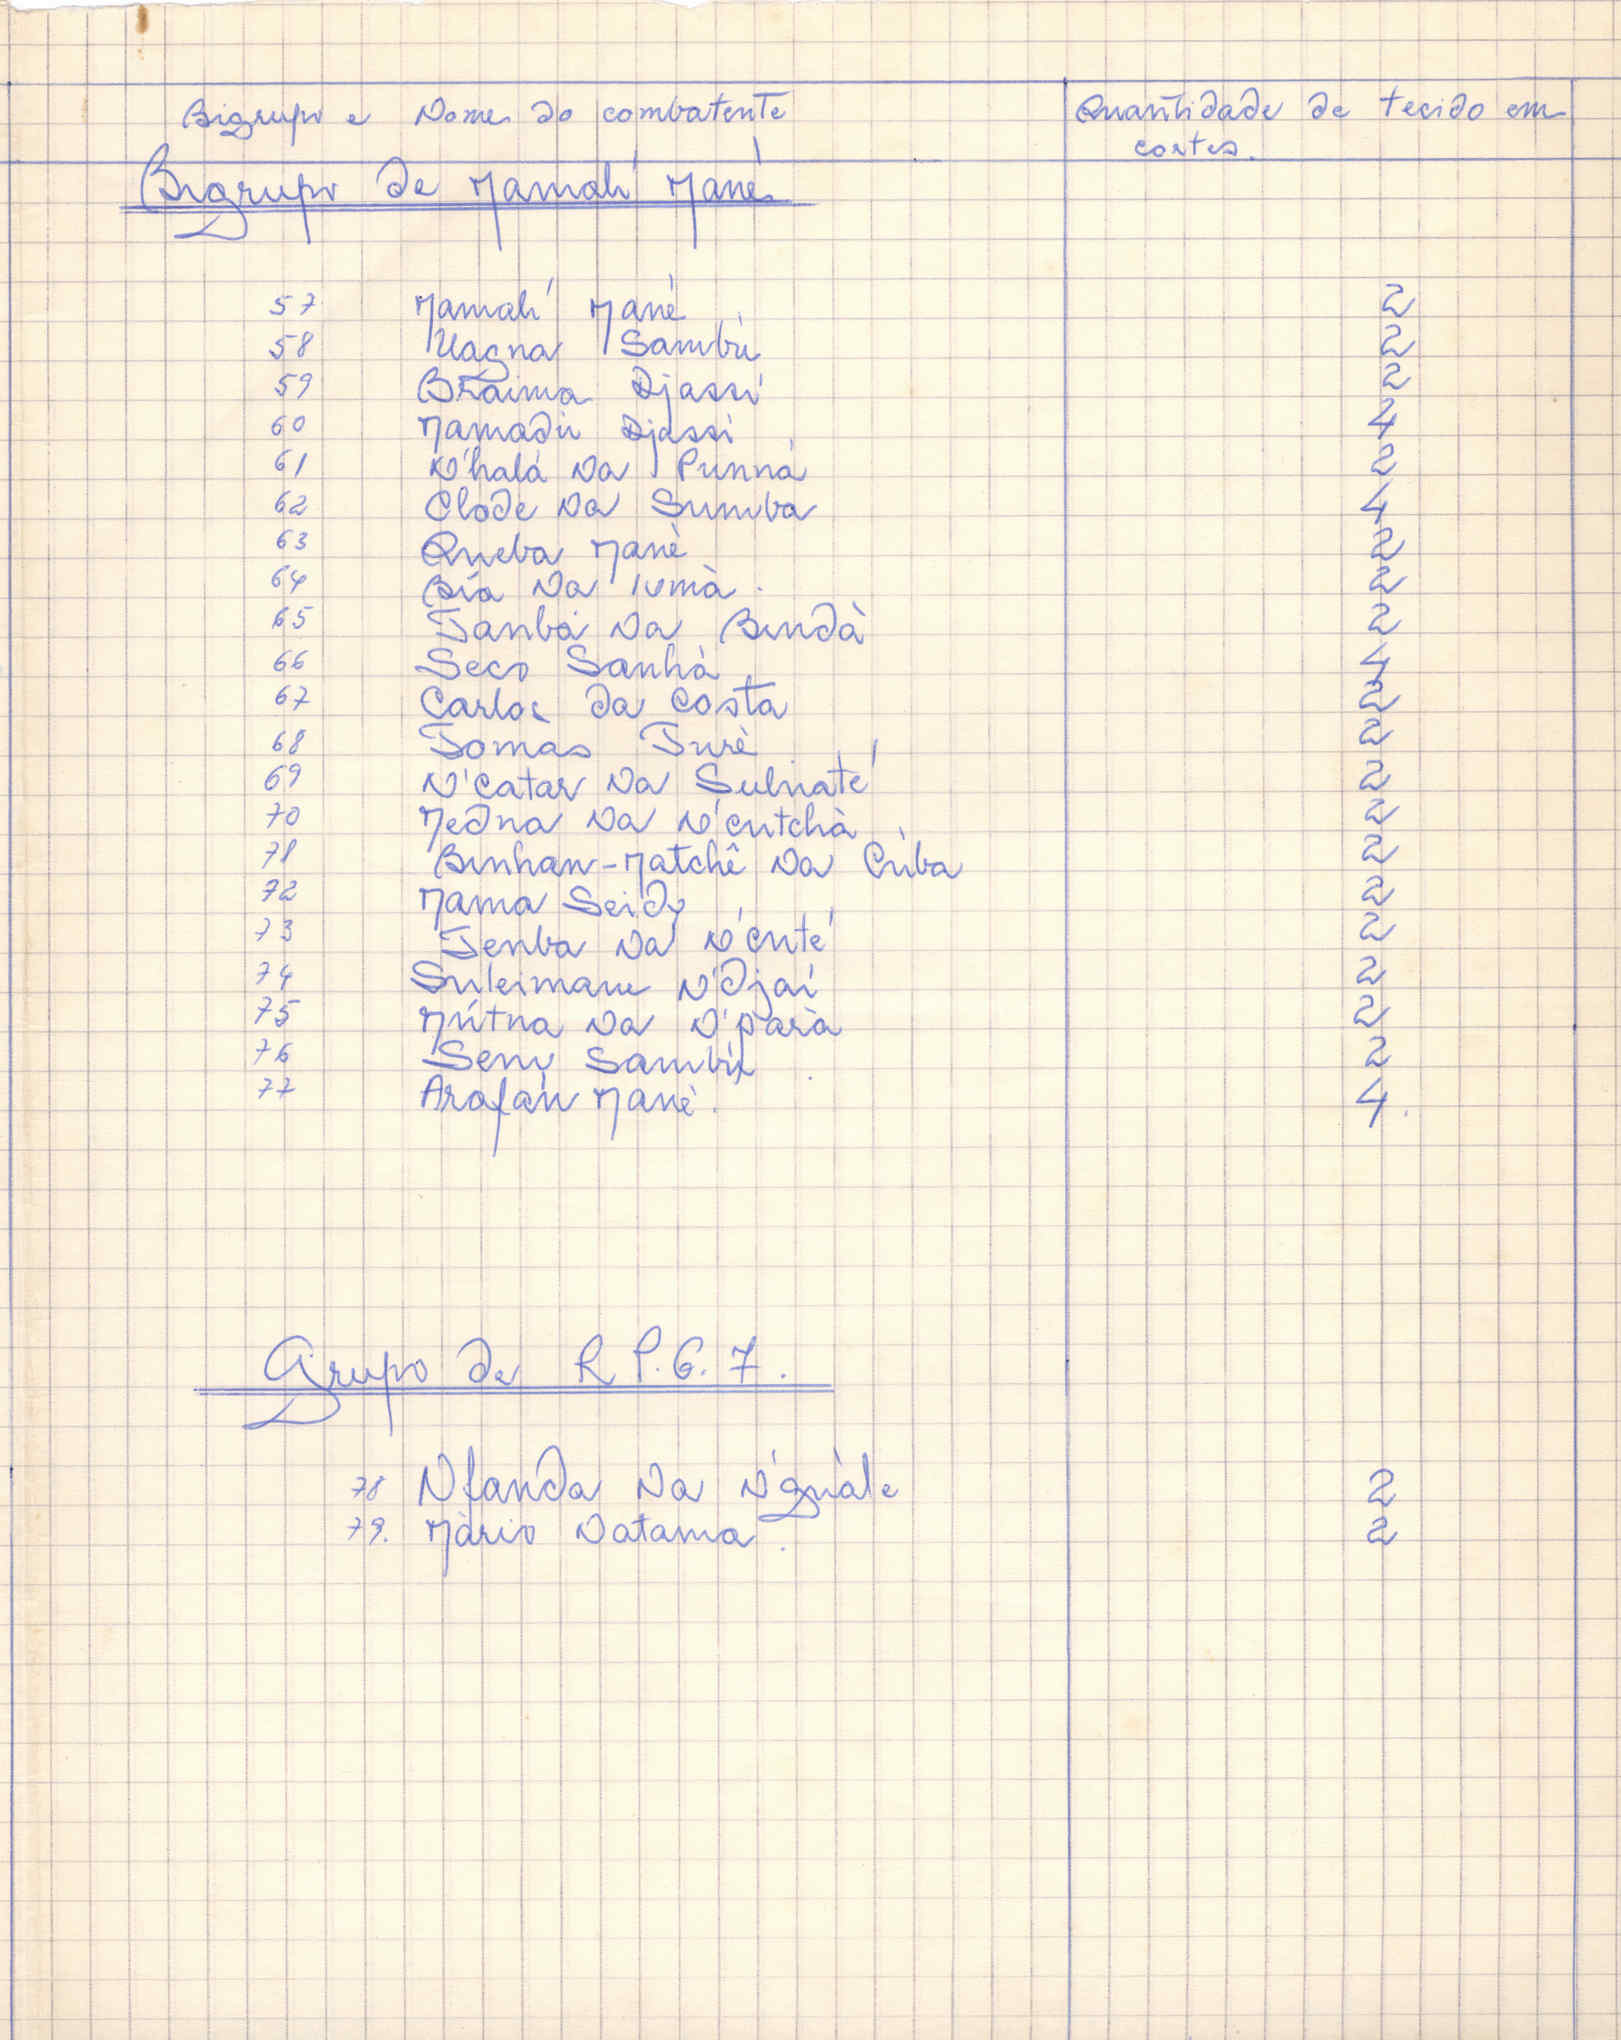 Bigrupo e Nome do combatente Quantidade de tecido em
cortes.
Bigrupo de Mamali Mané
57 Mamali Mané 2
58 Uagna Sambú 2
59 Braima Djassi 2
60 Mamadú Djassi 4
61 N'halá Na Punná 2
62 Clode Na Sumba 4
63 Queba Mané 2
64 Bía Na 2
65 Tanbá Na Bindà 2
66 Seco Sanhà 4
67 Carlos da Costa 2
68 Tomas Turè 2
69 N'Catar Na 2
70 Medna Na N'cutchà 2
71 Binhan-Matchê Na Cúba 2
72 Mama Seidy 2
73 Tenba Na N'cuté 2
74 Suleimane N'Djai 2
75 Mútna Na N'parà 2
76 Seny Sambú 2
77 Arafán Mané. 4.
Grupo de R P.G.7.
78 Nfanda Na N'guàle 2
79. Màrio Natama. 2